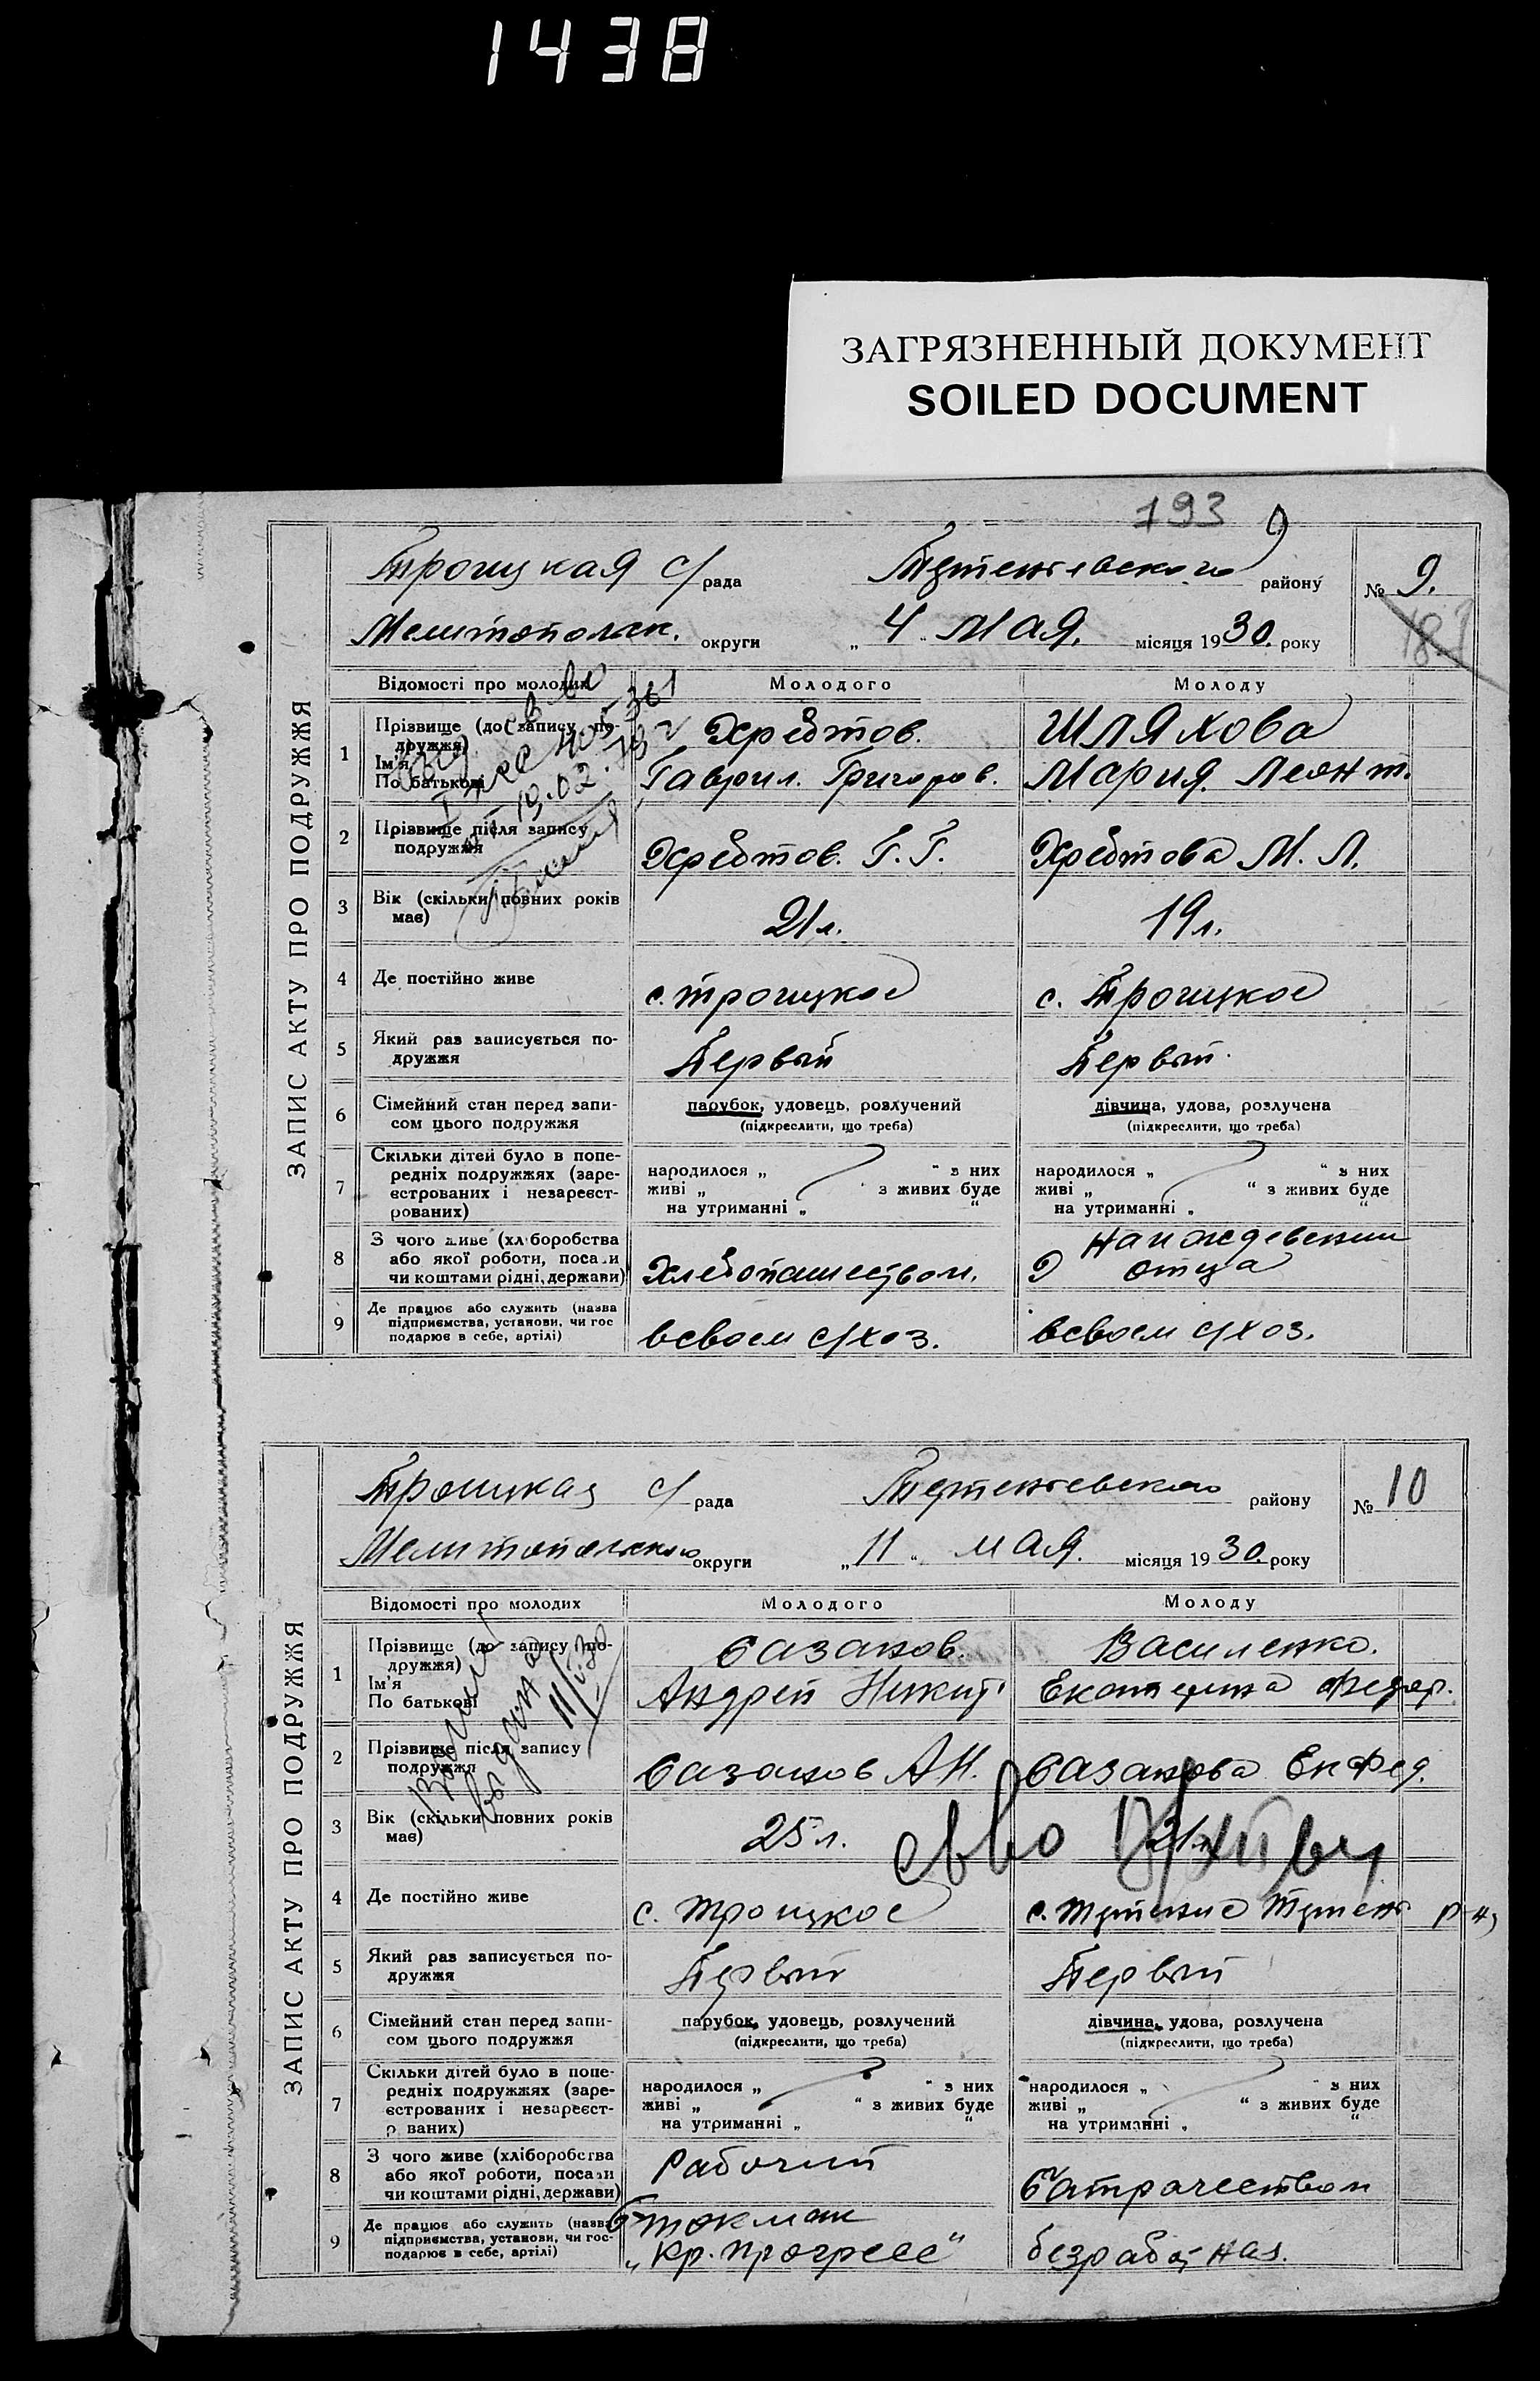 1438
ЗАГРЯЗНЕННЫЙ ДОКУМЕНТ
SOILED DOCUMENT
193 9
ЗАПИС АКТУ ПРО ПОДРУЖЖЯ
Троицкая с/рада району № 9.
Мелитопольск. округи „ 4 „ мая. місяця 1930. року
Відомості про молодих Молодого Молоду
1 Прізвище (до запису по-
дружжя)
Ім'я
По батькові
Хребтов. Шляхова
Гаврил. Григоров. Мария. Леонт.
2 Прізвище після запису
подружжя
Хребтов. Г. Г. Хребтова М. Л.
3 Вік (скільки повних років
має)
21 л. 19 л.
4 Де постійно живе с. троицкое с. Троицкое
5 Який раз записується по-
дружжя
Первый Первый
6 Сімейний стан перед запи-
сом цього подружжя
парубок, удовець, розлучений дівчина, удова, розлучена
(підкреслити, що треба) (підкреслити, що треба)
7 Скільки дітей було в попе-
редніх подружжях (заре-
єстрованих і незареєст-
рованих)
народилося „ “ з них народилося „ “ з них
живі „ з живих буде живі „ “ з живих буде
на утриманні „ “ на утриманні „ “
8 З чого живе (хліборобства
або якої роботи, посади
чи коштами рідні, держави)
Хлебопашеством. На иждевении
отца
9 Де працює або служить (назва
підприємства, установи, чи гос
подарює в себе, артілі)
в своем с/хоз. в своем с/хоз.
19.02.
ЗАПИС АКТУ ПРО ПОДРУЖЖЯ
Троицкая с/рада району № 10
округи „ 11 „ мая. місяця 1930. року
Відомості про молодих Молодого Молоду
1 Прізвище (до запису по-
дружжя)
Ім'я
По батькові
Сазанов. Василенко.
Андрей Никит. Екатерина Федор.
2 Прізвище після запису
подружжя
Сазанов А Н. Сазанова Ек Фед.
3 Вік (скільки повних років
має)
25 л. 21 л.
4 Де постійно живе с. Троицкое
5 Який раз записується по-
дружжя
Первый Первый
6 Сімейний стан перед запи-
сом цього подружжя
парубок, удовець, розлучений дівчина, удова, розлучена
(підкреслити, що треба) (підкреслити, що треба)
7 Скільки дітей було в попе-
редніх подружжях (заре-
єстрованих і незареєст-
р ваних)
народилося „ “ з них народилося „ “ з них
живі „ “ з живих буде живі „ “ з живих буде
на утриманні „ “ на утриманні „ “
8 З чого живе (хліборобства
або якої роботи, посади
чи коштами рідні, держави)
Рабочий батрачеством
9 Де працює або служить (назва
підприємства, установи, чи гос-
подарює в себе, артілі)
Б токмак
„Кр. прогресс“ безработная.
выдана